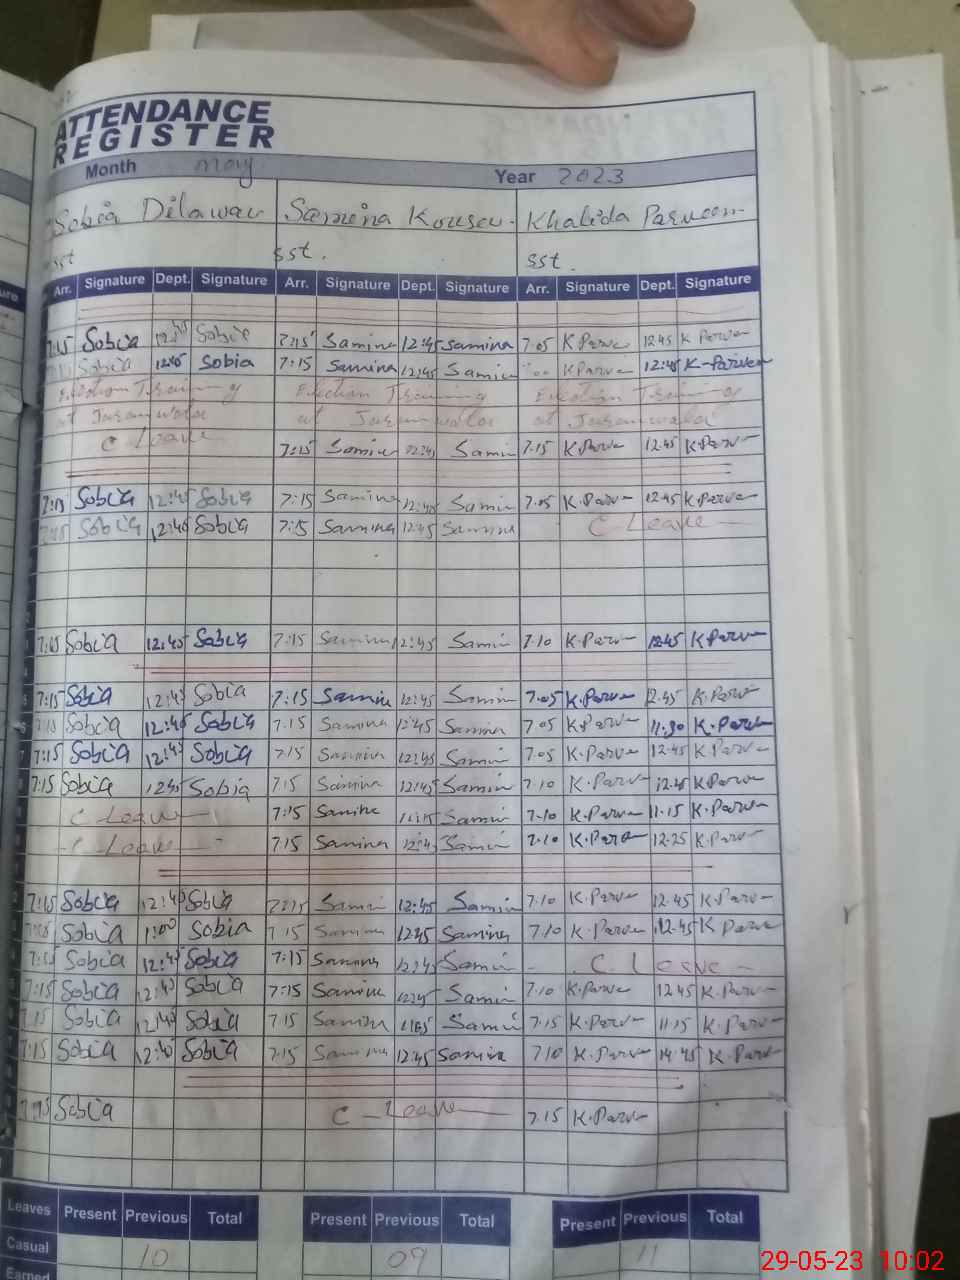 ATTENDANCE
REGISTER
Month may Year 2023
Sobia Dilawar Samina Kousar Khalida Parveen
sst sst. sst.
Arr. Signature Dept. Signature Arr. Signature Dept. Signature Arr. Signature Dept. Signature
7:15 Sobia Sobia 7:15 Samina 12:45 Samina 7.05 K Parve 12.45 K Parve
Sobia 12:45 Sobia 7:15 Samina 12:45 Samin K Parve 12:45 K-Parveen
Election Training Election Training Election Training
at Jaranwala at Jaranwala at Jaranwala
C Leave
7:15 Samin 12:45 Samin 7.15 K.Parve 12.45 K.Parve
Sobia 12:45 Sobia 7:15 Samina 12:45 Samin 7.05 K.Parve 12.45 K.Parve
Sobia 12:40 Sobia 7:15 Samina 12:45 Samina C Leave
7:15 Sobia 12:45 Sobia 7:15 Samina 12:45 Samin 7.10 K.Parve 12.45 K Parve
7:15 Sobia 12:45 Sobia 7:15 Samina 12:45 Samin 7.05 K.Parve 12.45 K.Parve
Sobia 12:40 Sobia 7.15 Samina 12:45 Samina 7.05 K.Parve 11.30 K.Parve
7:15 Sobia 12:45 Sobia 7:15 Samina 12:45 Samin 7.05 K.Parve 12.45 K Parve
7:15 Sobia 12:45 Sobia 7.15 Samina 12:45 Samin 7.10 K.Parve 12.45 K Parve
C Leave 7:15 Samina 11:15 Samin 7.10 K.Parve 11.15 K Parve
C Leave 7:15 Samina Samin 7.10 K.Parve 12.25 K.Parve
7:15 Sobia 12:40 Sobia Samin 12:45 Samin 7.10 K.Parve 12.45 K.Parve
Sobia 1:00 Sobia 7.15 Samina 12:45 Samina 7.10 K.Parve 12.45 K Parve
Sobia 12:45 Sobia 7:15 Samina 12:45 Samin C. Leave
7:15 Sobia 12:40 Sobia 7:15 Samina 12:45 Samin 7.10 K.Parve 12.45 K.Parve
7:15 Sobia 12:40 Sobia 7.15 Samina Samin 7.15 K.Parve 11.15 K.Parve
7:15 Sobia 12:40 Sobia 7.15 Samina 12:45 Samina 7.10 K.Parve 14.45 K.Parve
Sobia C Leave 7.15 K.Parve
Leaves Present Previous Total Present Previous Total Present Previous Total
Casual 10 09 11
Earned
29-05-23 10:02